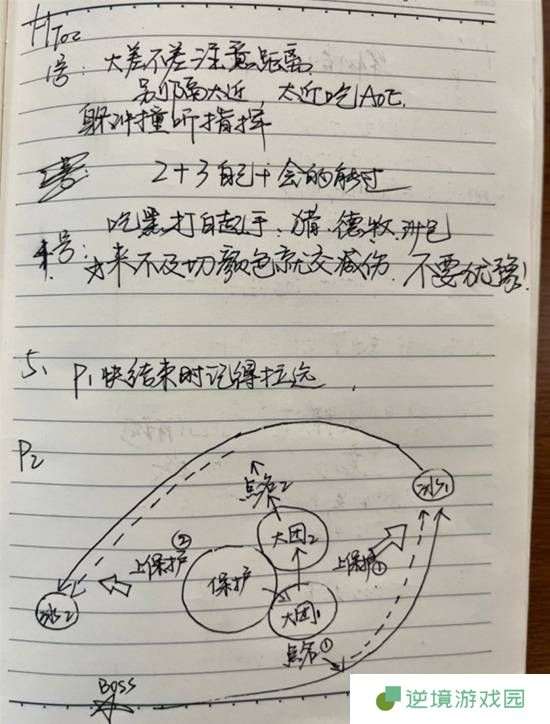 HToc
1号: 大差不差注意距离
别隔太近, 太近吃AOE.
躲冲撞听指挥
2+3 自己十会的能过
吃黑打白起手, 猎、德、牧
4号: 来不及切颜色就交减伤. 不要犹豫!
5、P1快结束时记得拉远.
P2
点名2
冰1
大团2
上保护②
保护
上保护①
冰2
大团1
点名①
BOSS
逆境游戏园